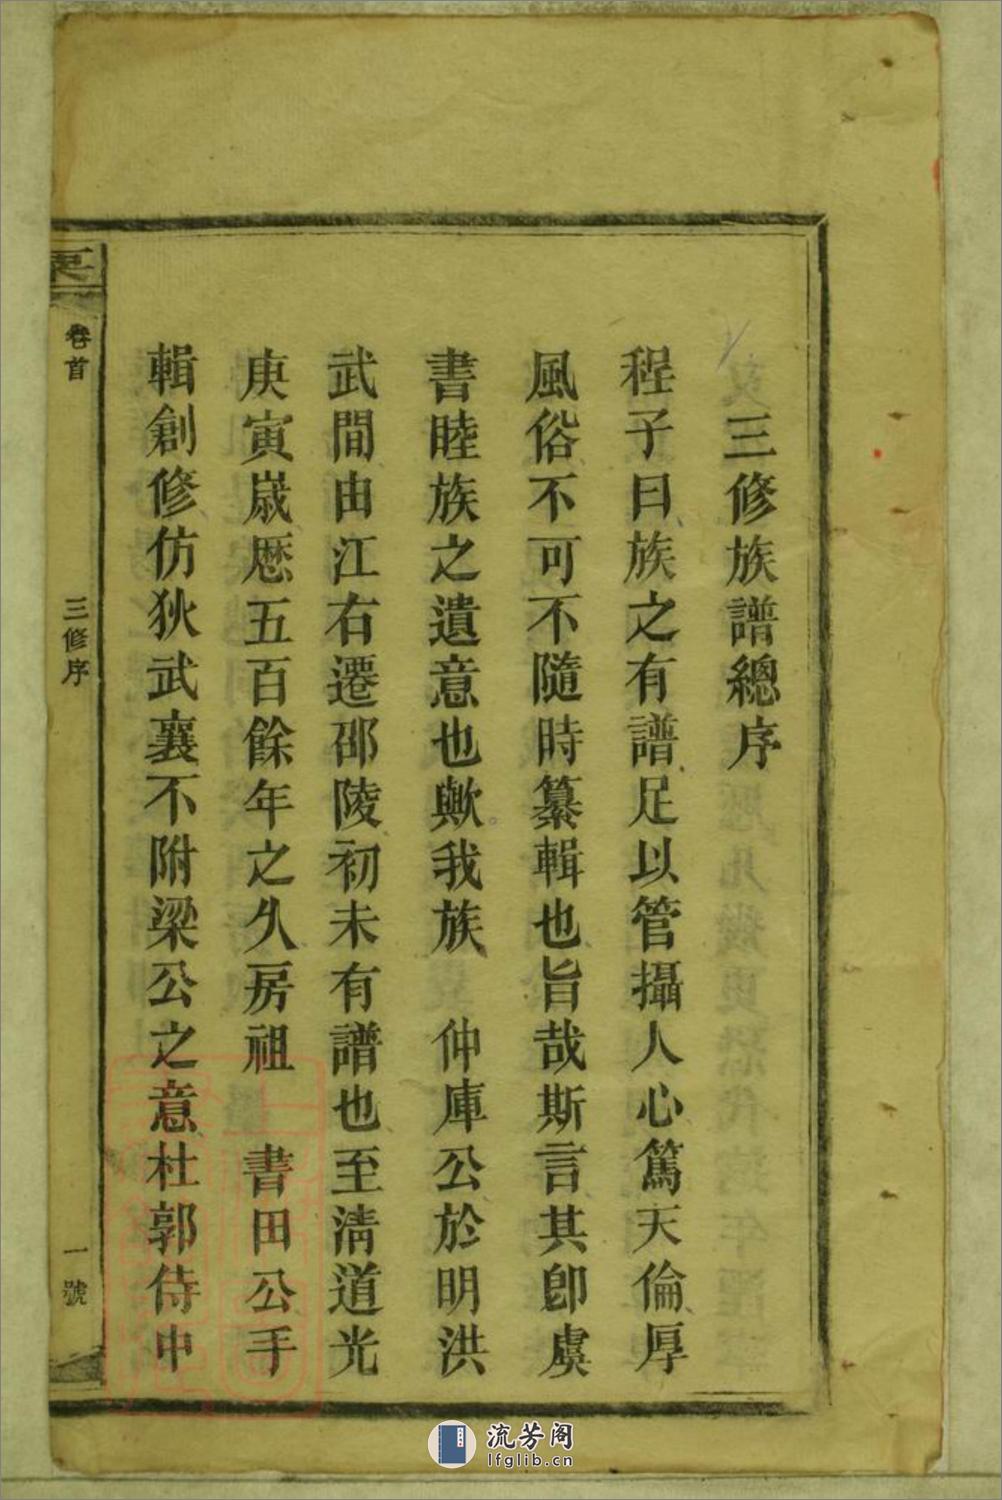 三修族譜總序
程子曰族之有譜足以管攝人心篤天倫厚
風俗不可不隨時纂輯也旨哉斯言其卽虞
書睦族之遺意也歟我族　仲庫公於明洪
武間由江右遷邵陵初未有譜也至淸道光
庚寅歲歷五百餘年之久房祖　書田公手
輯創修仿狄武襄不附梁公之意杜郭侍中
卷首
三修序
一號
流芳阁
lfglib.cn